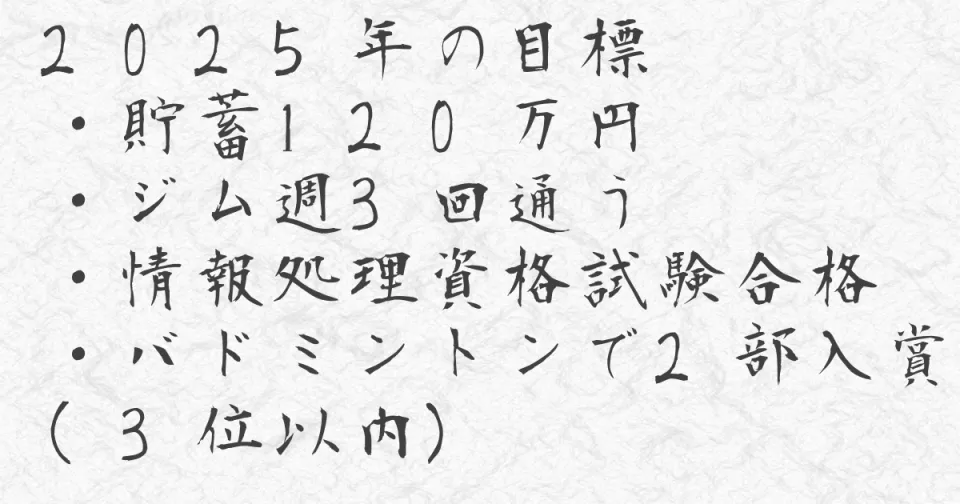 2025年の目標
・貯蓄120万円
・ジム週3回通う
・情報処理資格試験合格
・バドミントンで2部入賞
(3位以内)